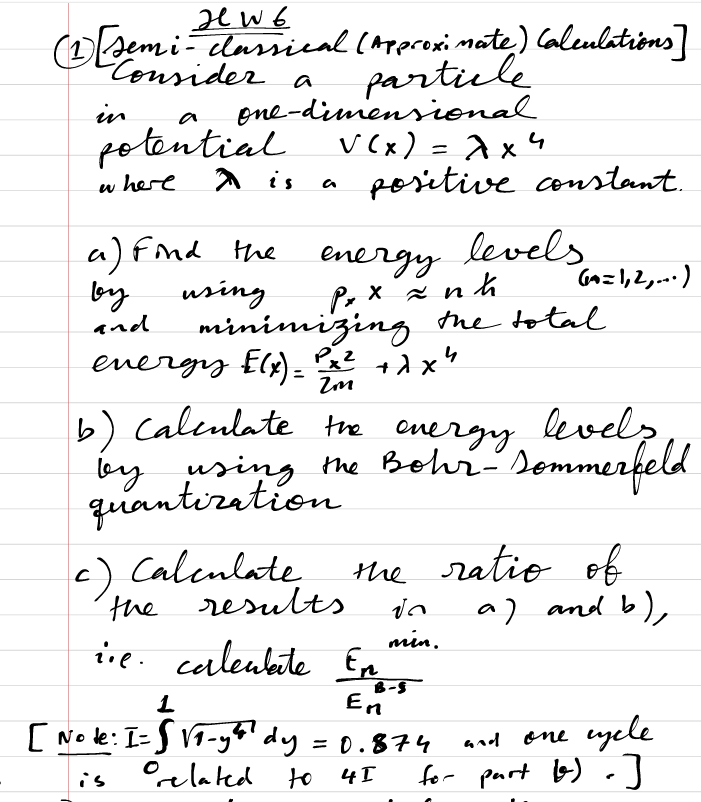 HW6
(1) [Semi-classical (Approximate) Calculations]
Consider a particle
in a one-dimensional
potential V(x) = λx⁴
where λ is a positive constant.
a) Find the energy levels
by using pₓ x ≈ nħ (n=1,2,...)
and minimizing the total
energy E(x) = pₓ²/2m + λx⁴
b) Calculate the energy levels
by using the Bohr-Sommerfeld
quantization
c) Calculate the ratio of
the results in a) and b),
i.e. calculate Eₙ^min. / Eₙ^B-S
[Note: I = ∫₀¹ √(1-y⁴) dy = 0.874 and one cycle
is related to 4I for part b).]